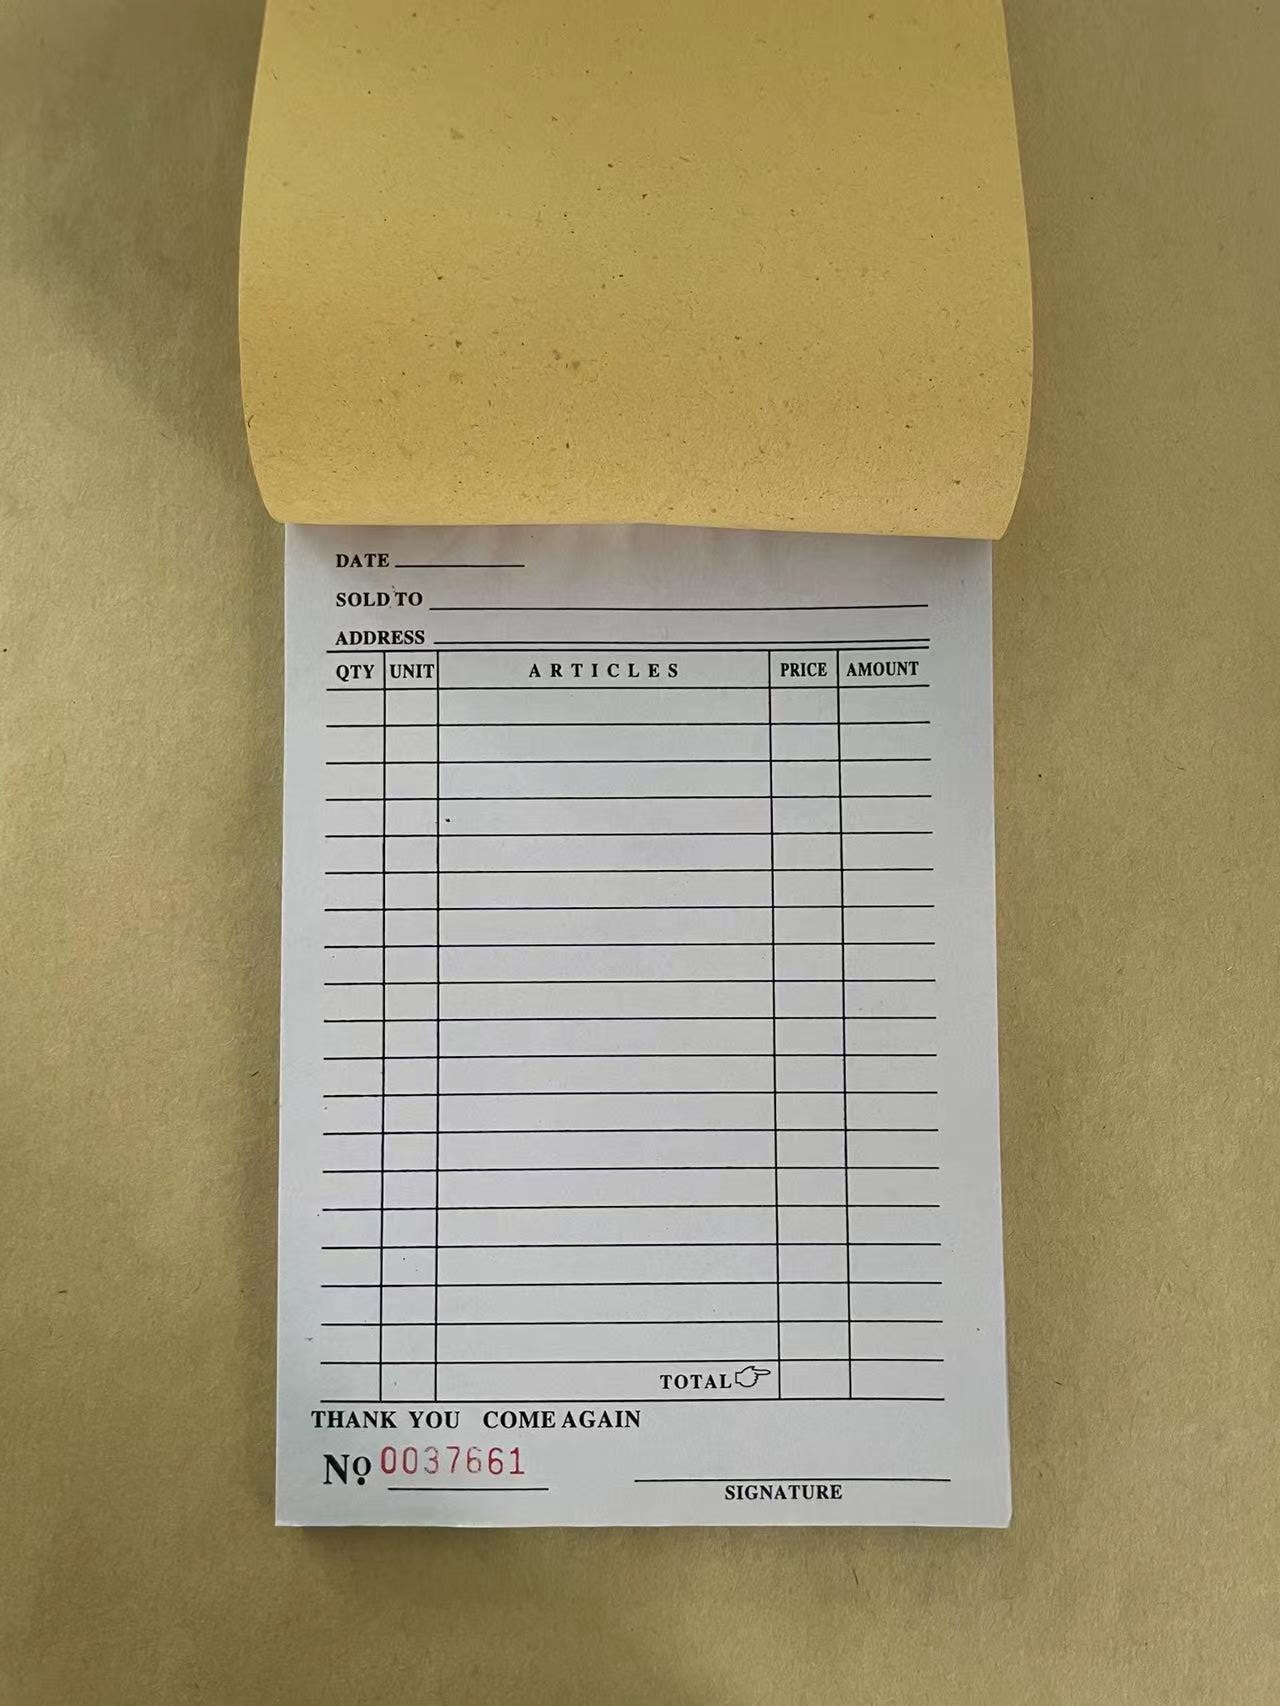 DATE
SOLD TO
ADDRESS
QTY UNIT ARTICLES PRICE AMOUNT
TOTAL
THANK YOU COME AGAIN
No 0037661
SIGNATURE